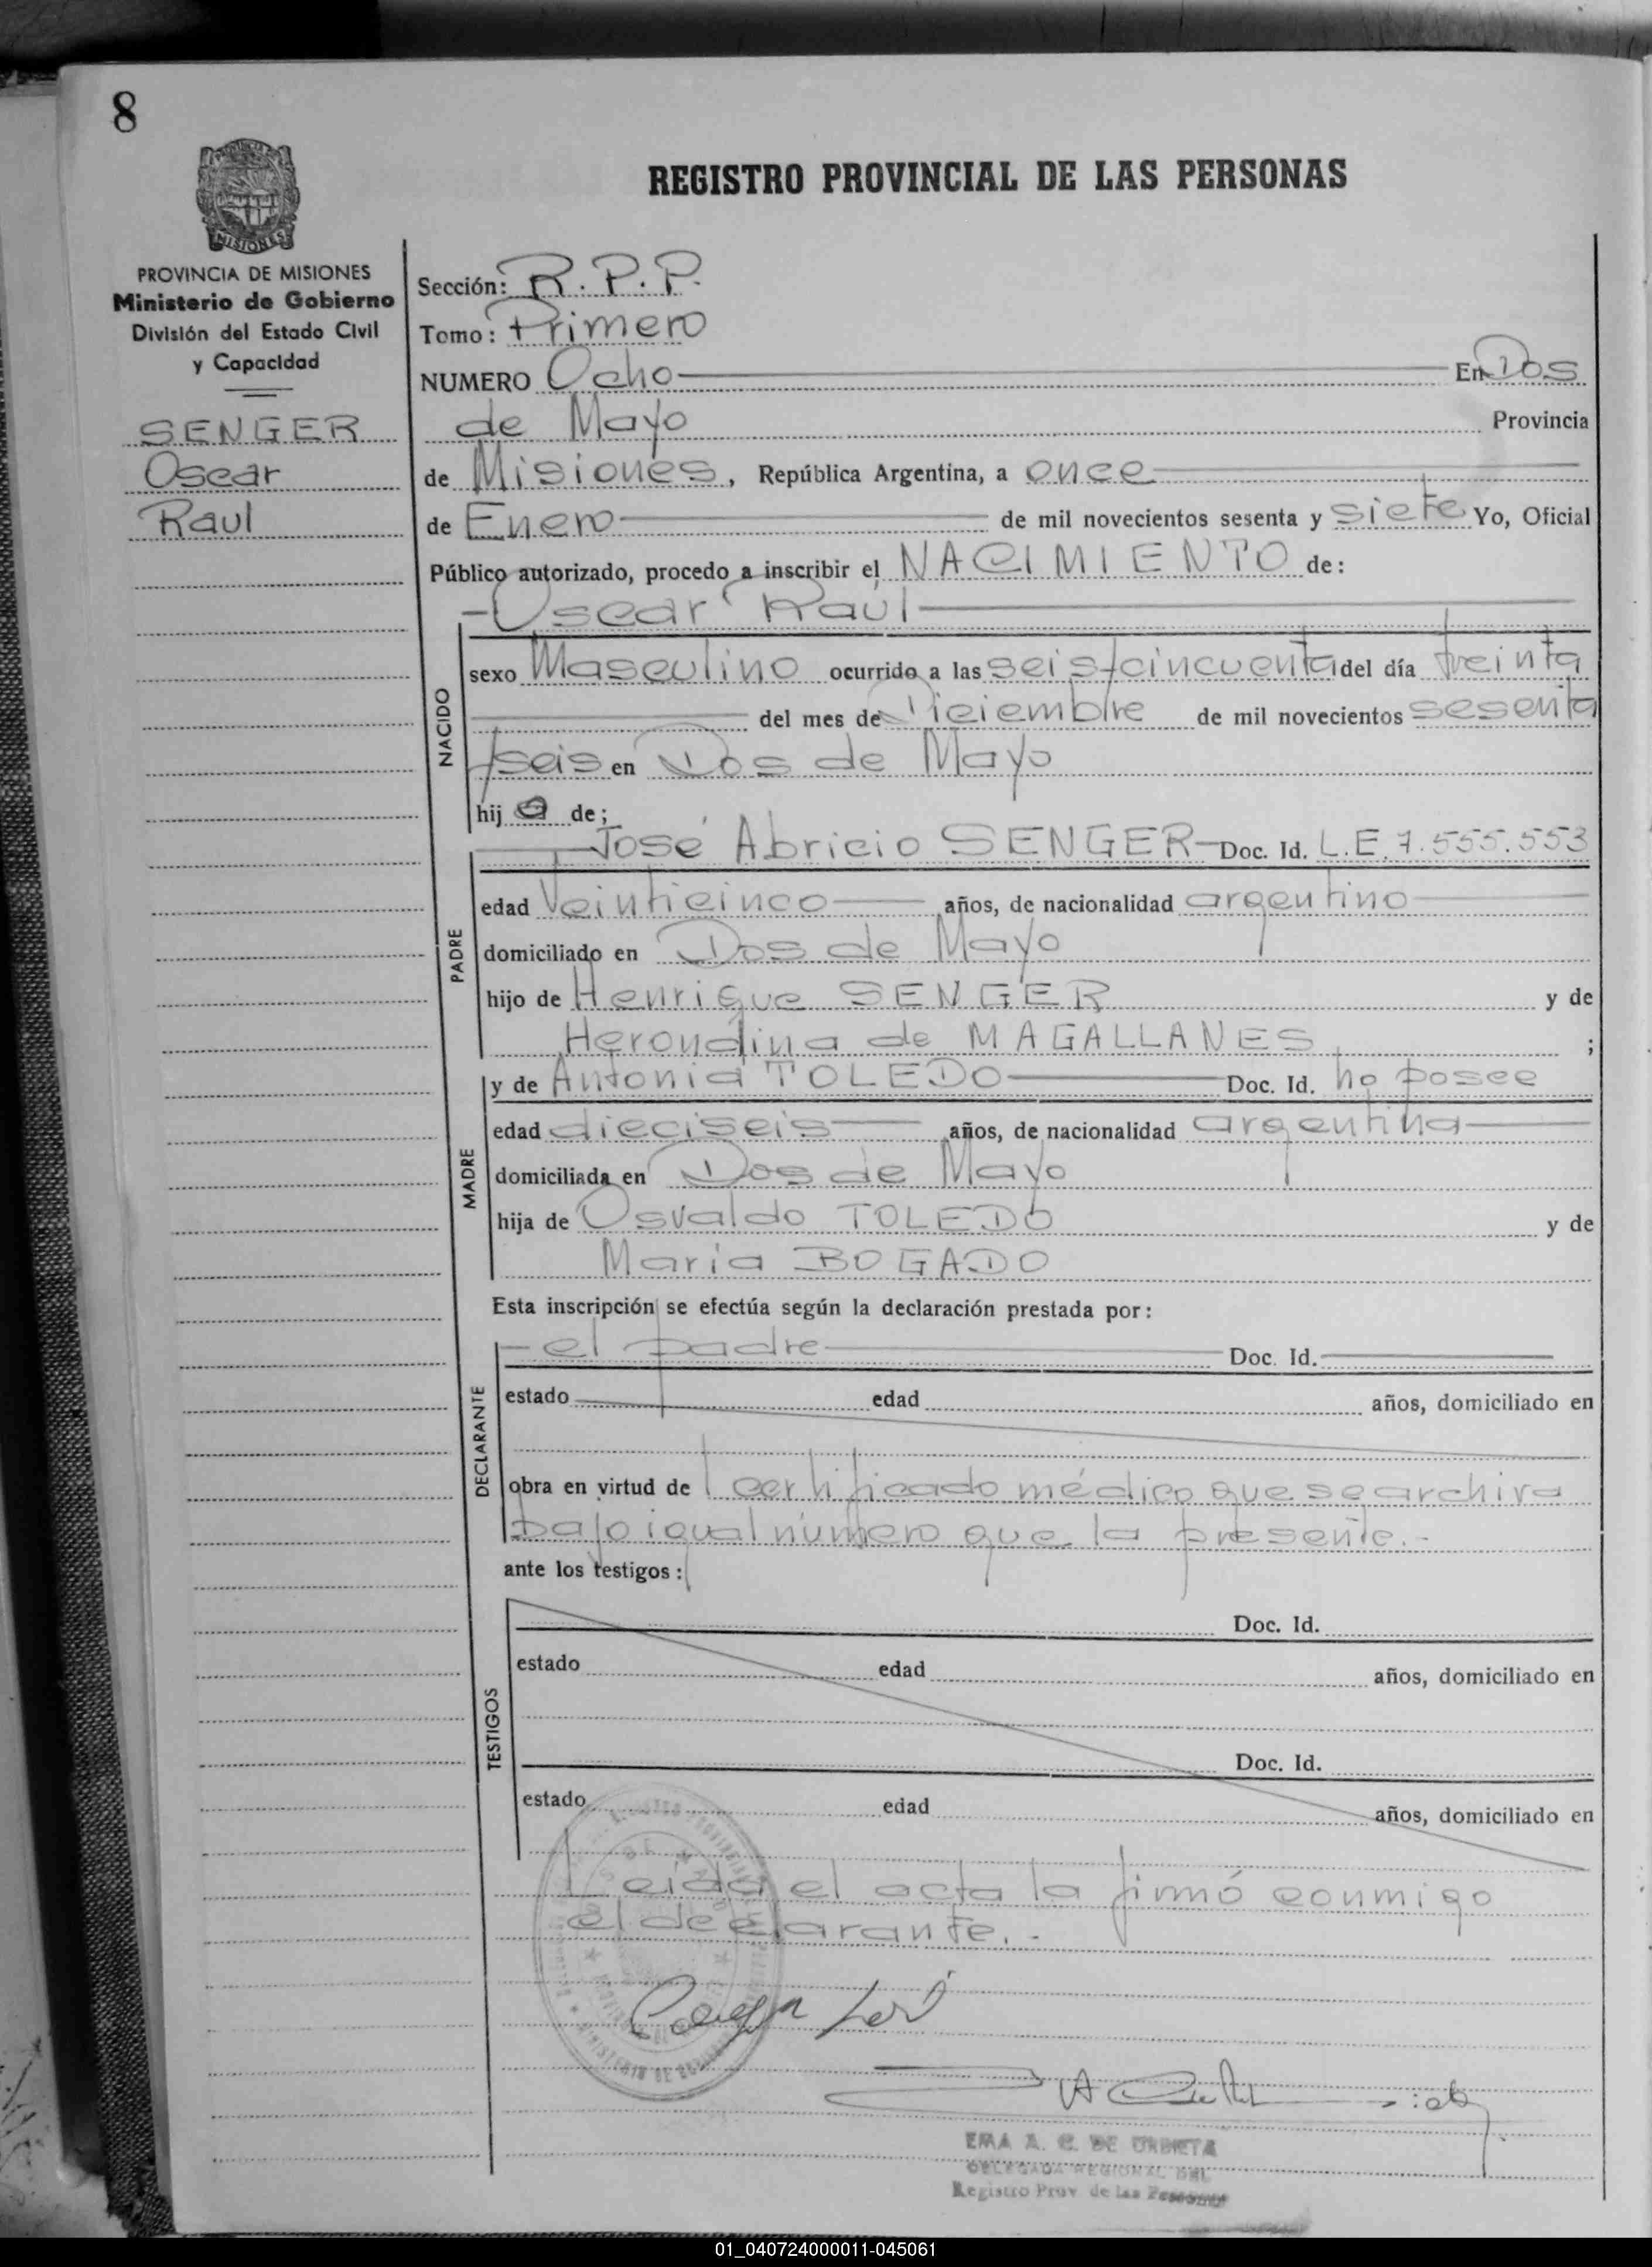 8
REGISTRO PROVINCIAL DE LAS PERSONAS
MISIONES
PROVINCIA DE MISIONES
Ministerio de Gobierno
División del Estado Civil
y Capacidad
SENGER
Oscar
Raul
Sección: R.P.P.
Tomo: Primero
NUMERO Ocho En Dos
de Mayo Provincia
de Misiones, República Argentina, a once
de Enero de mil novecientos sesenta y siete Yo, Oficial
Público autorizado, procedo a inscribir el NACIMIENTO de:
Oscar Raúl
NACIDO
sexo Masculino ocurrido a las seis y cincuenta del día treinta
del mes de Diciembre de mil novecientos sesenta
y seis en Dos de Mayo
hijo de;
José Abricio SENGER Doc. Id. L.E. 7.555.553
PADRE
edad Veinticinco años, de nacionalidad argentino
domiciliado en Dos de Mayo
hijo de Henrique SENGER y de
Herondina de MAGALLANES ;
y de Antonia TOLEDO Doc. Id. no posee
MADRE
edad dieciseis años, de nacionalidad argentina
domiciliada en Dos de Mayo
hija de Osvaldo TOLEDO y de
Maria BOGADO
Esta inscripción se efectúa según la declaración prestada por:
el padre Doc. Id.
DECLARANTE
estado edad años, domiciliado en
obra en virtud de certificado médico que se archiva
bajo igual número que la presente.-
ante los testigos:
TESTIGOS
Doc. Id.
estado edad años, domiciliado en
Doc. Id.
estado edad años, domiciliado en
Leida el acta la firmó conmigo
el declarante.-
EMA A. C. DE URBIETA
DELEGADA REGIONAL DEL
Registro Prov. de las Personas
01_040724000011-045061